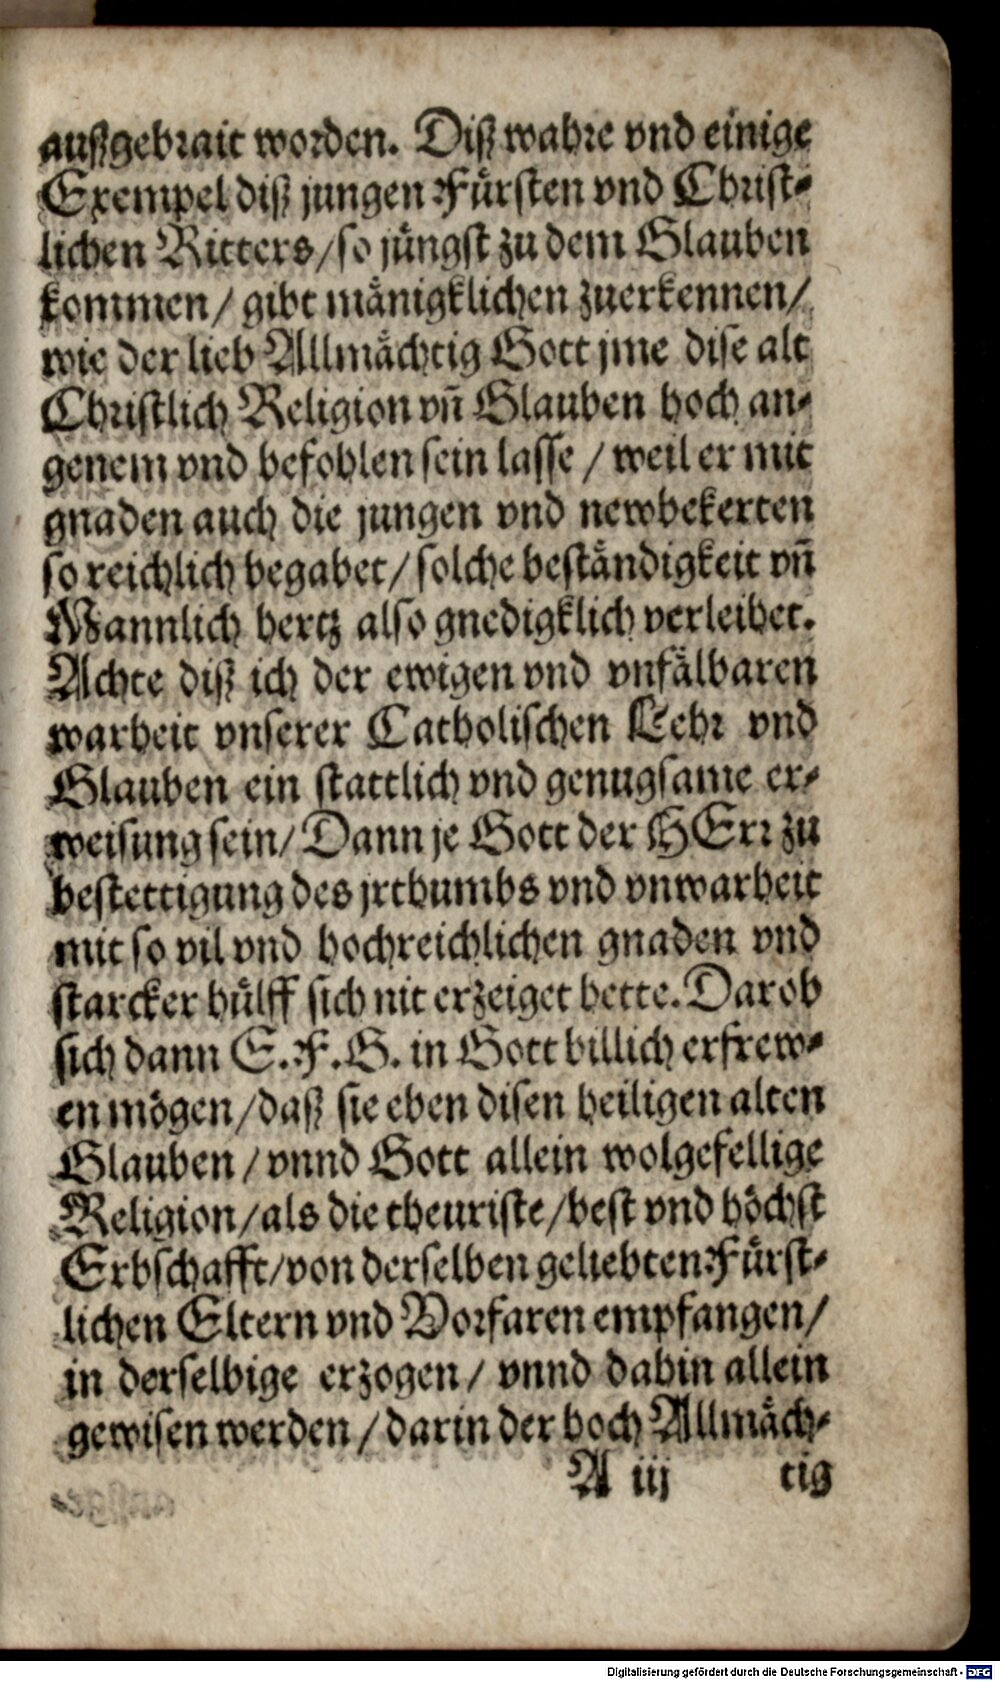 außgebrait worden. Diß wahre vnd einige
Exempel diß jungen Fürsten vnd Christ-
lichen Ritters/so jüngst zu dem Glauben
kommen/ gibt mänigklichen zuerkennen/
wie der lieb Allmächtig Gott jme dise alt
Christlich Religion vn̄ Glauben hoch an-
genem vnd befohlen sein lasse / weil er mit
gnaden auch die jungen vnd newbekerten
so reichlich begabet/solche beständigkeit vn̄
Mannlich hertz also gnedigklich verleihet.
Achte diß ich der ewigen vnd vnfälbaren
warheit vnserer Catholischen Lehr vnd
Glauben ein stattlich vnd genugsame er-
weisung sein/ Dann je Gott der HErr zu
bestettigung des jrthumbs vnd vnwarheit
mit so vil vnd hochreichlichen gnaden vnd
starcker hülff sich nit erzeiget hette. Darob
sich dann E.F.G. in Gott billich erfrew-
en mögen/daß sie eben disen heiligen alten
Glauben / vnnd Gott allein wolgefellige
Religion/als die theuriste/best vnd höchst
Erbschafft/von derselben geliebten Fürst-
lichen Eltern vnd Vorfaren empfangen/
in derselbige erzogen/ vnnd dahin allein
gewisen werden / darin der hoch Allmäch-
A iij tig
Digitalisierung gefördert durch die Deutsche Forschungsgemeinschaft - DFG